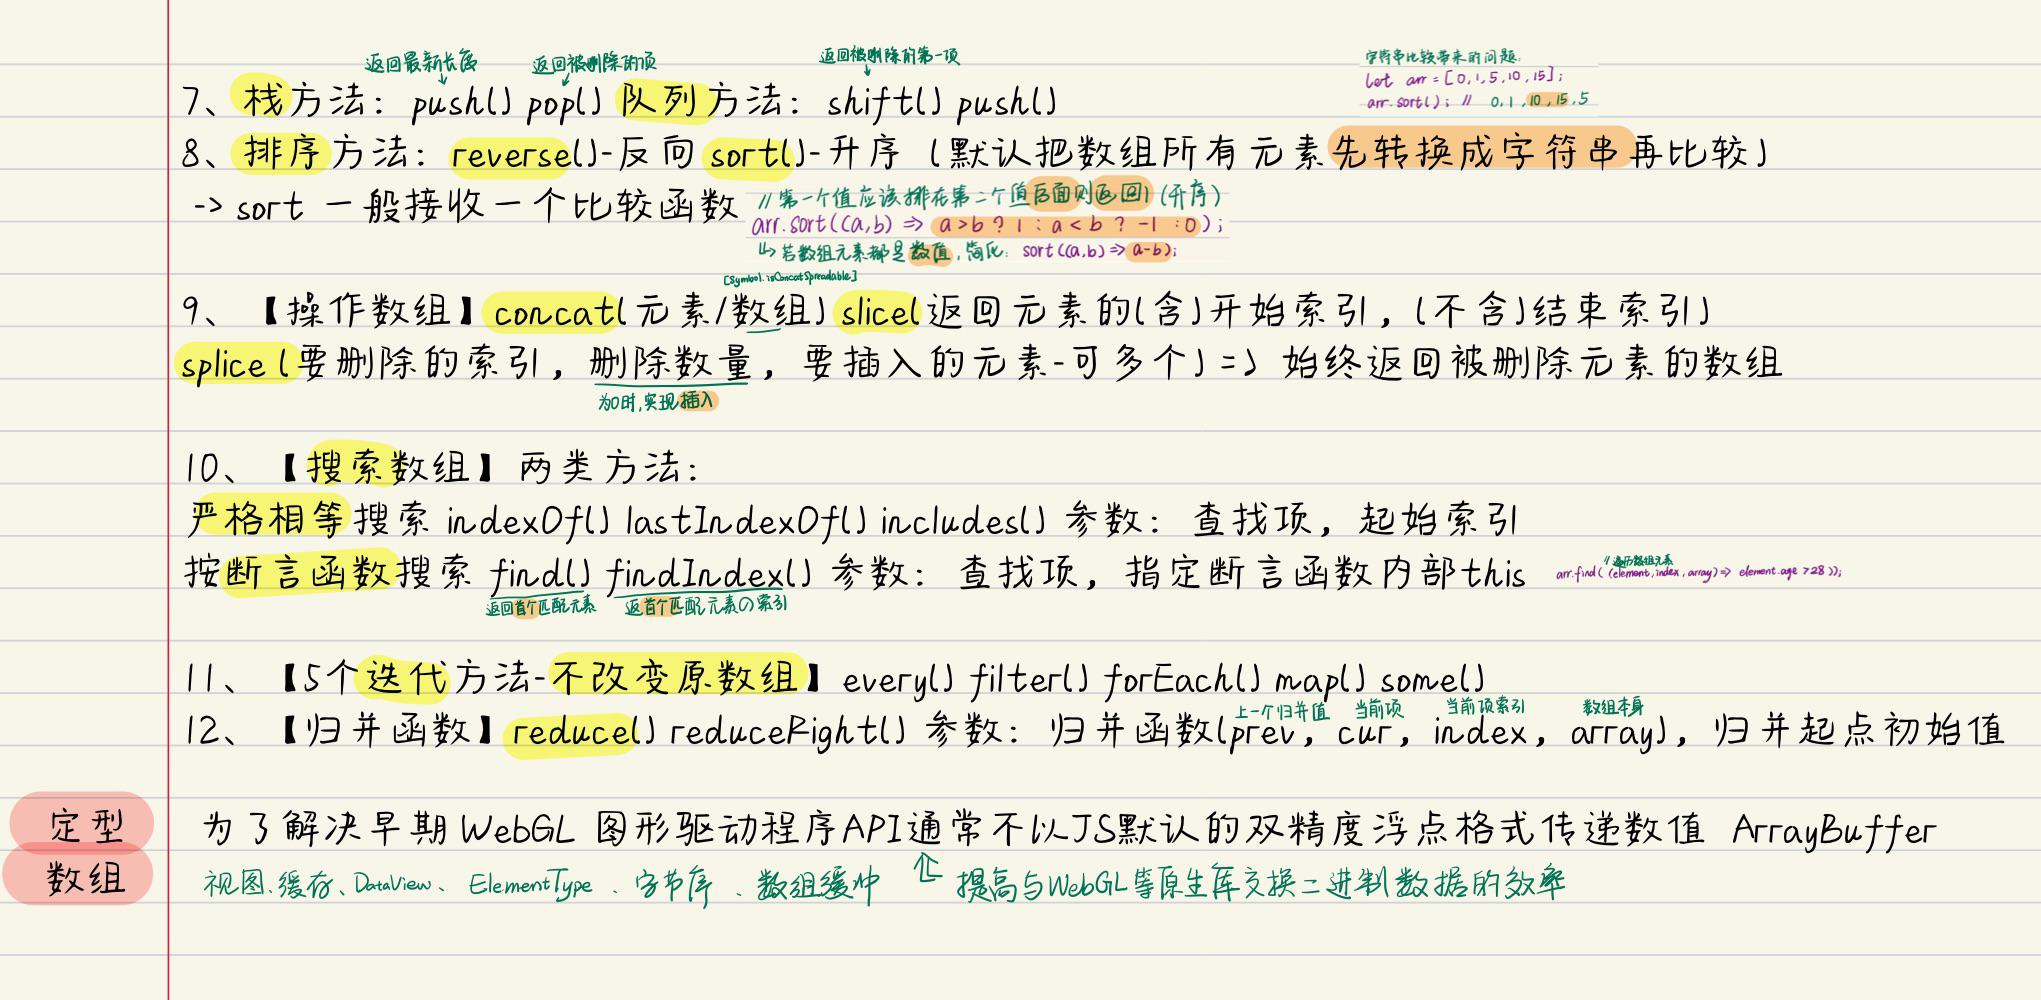 返回最新长度 返回被删除的项 返回被删除的第一项
字符串比较带来的问题:
let arr = [0,1,5,10,15];
arr.sort(); // 0,1,10,15,5
7、栈方法：push() pop() 队列方法：shift() push()
8、排序方法：reverse()-反向 sort()-升序（默认把数组所有元素先转换成字符串再比较）
-> sort 一般接收一个比较函数
// 第一个值应该排在第二个值后面则返回1 (升序)
arr.sort((a,b) => a>b ? 1 : a<b ? -1 : 0);
↳ 若数组元素都是数值,简化: sort((a,b)=>a-b);
[Symbol.isConcatSpreadable]
9、【操作数组】concat(元素/数组) slice(返回元素的(含)开始索引，(不含)结束索引)
splice(要删除的索引，删除数量，要插入的元素-可多个) => 始终返回被删除元素的数组
为0时,实现插入
10、【搜索数组】两类方法：
严格相等搜索 indexOf() lastIndexOf() includes() 参数：查找项，起始索引
按断言函数搜索 find() findIndex() 参数：查找项，指定断言函数内部this
// 遍历数组元素
arr.find((element,index,array)=> element.age >28));
返回首个匹配元素 返首个匹配元素の索引
11、【5个迭代方法-不改变原数组】every() filter() forEach() map() some()
上一个归并值 当前项 当前项索引 数组本身
12、【归并函数】reduce() reduceRight() 参数：归并函数(prev，cur，index，array)，归并起点初始值
定型
数组
为了解决早期WebGL 图形驱动程序API通常不以JS默认的双精度浮点格式传递数值 ArrayBuffer
视图、缓存、DataView、ElementType、字节序、数组缓冲 ⇧ 提高与WebGL等原生库交换二进制数据的效率